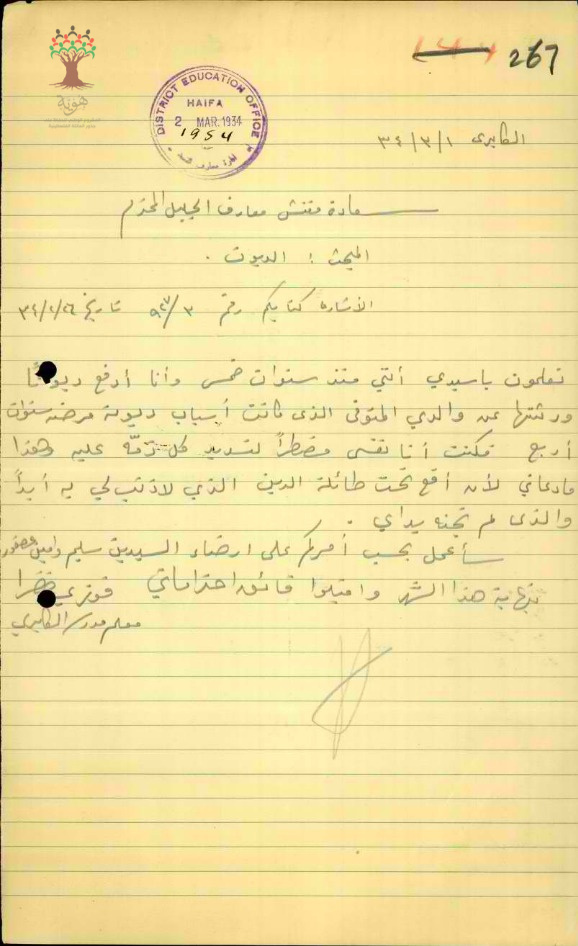 267
هوية
DISTRICT EDUCATION OFFICE
HAIFA
2 MAR. 1934
1954
الكابري ٣٤/٣/١
سعادة مفتش معارف الجليل المحترم
المبحث : الديون .
الأشارة كتابكم رقم ٩٢٧/٣ تاريخ ٣٤/٢/٢٦
تعلمون يا سيدي أنني منذ سنوات خمس وأنا أدفع ديونًا
ورثتها عن والدي المتوفى الذى كانت أسباب ديونه مرضه سنوات
أربع فكنت أنا نفسى مضطراً لتسديد كل ذمّة عليه وهذا
مادعاني لأن أقع تحت طائلة الدين الذي لا ذنب لي به أبداً
والذى لم تجنه يداي .
سأعمل بحسب أمركم على ارضاء السيدين سليم وامين عصفور
نهاية هذا الشهر واقبلوا فائق احتراماتي فوزي
معلم مدرسة الكابري